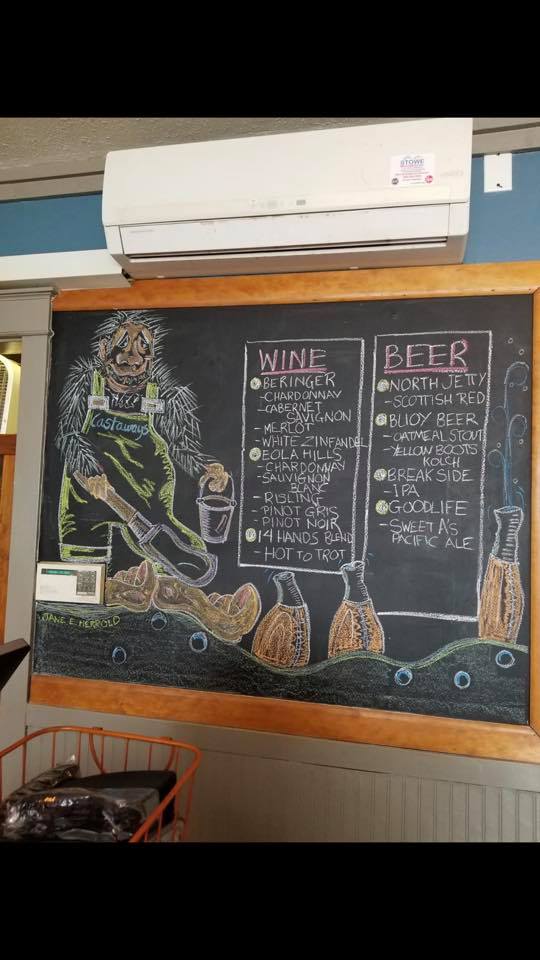 STOWE
Castaways
JANE E. HERROLD
WINE
BERINGER
-CHARDONNAY
-CABERNET
SAVIGNON
-MERLOT
-WHITE ZINFANDEL
EOLA HILLS
-CHARDONNAY
-SAUVIGNON
BLANK
-RISLING
-PINOT GRIS
-PINOT NOIR
14 HANDS BLEND
-HOT TO TROT
BEER
NORTH JETTY
-SCOTTISH RED
BUOY BEER
-OATMEAL STOUT
-YELLOW BOOTS
KOLCH
BREAKSIDE
-IPA
GOODLIFE
-SWEET A'S
PACIFIC ALE